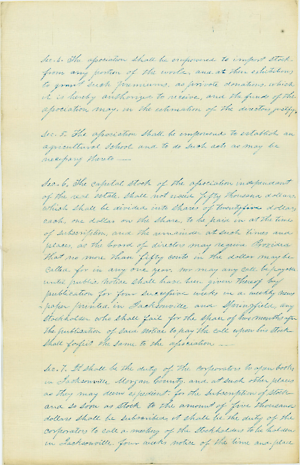 Sec. 4. The association shall be empowered to import stock
from any portion of the world, and at their exhibitions
to grant such premiums, as private donations, which
it is hereby authorized to receive, and the funds of the
association may, in the estimation of the directors justify.
Sec. 5. The association shall be empowered to establish an
agricultural school and to do such acts as may be
necessary thereto
Sec. 6. The capital stock of the association independent
of the real estate shall not exceed fifty thousand dollars
which shall be divided into shares of twenty five dollars
each, one dollar on the share to be paid in at the time
of subscription and the remainder at such times and
places, as the board of directors may require Provided
that no more than fifty cents in the dollar may be
called for in any one year, nor may any call be
until public notice shall have been given thereof by
publication for four successive weeks in a weekly news
paper printed in Jacksonville and Springfield, any
stockholder who shall fail for the space of two months after
the publication of said notice to pay the call upon his stock
shall forfeit the same to the association.
Sec. 7. It shall be the duty of the corporators to open books
in Jacksonville, Morgan County and at such other places
as they may deem expedient for the subscription of stock
and so soon as stock to the amount of five thousand
dollars shall be subscribed it shall be the duty of the
corporators to call a meeting of the stockholders to be holden
in Jacksonville, four weeks notice of the time and place